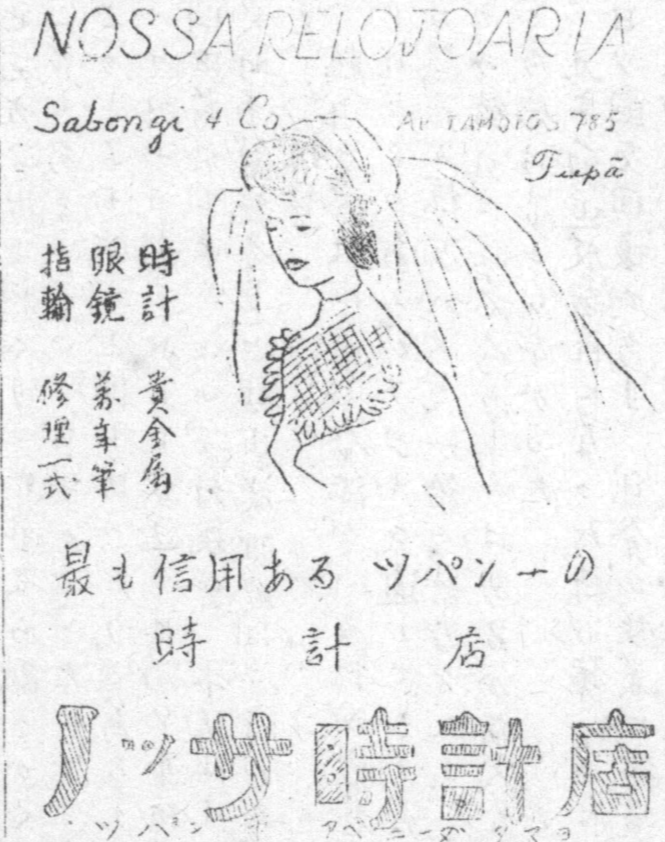 NOSSA RELOJOARIA
Sabongi & Co
Av TAMOIOS 785
Tupã
時計 貴金属
眼鏡 萬年筆
指輪 修理一式
最も信用ある ツパン一の
時計店
ノッサ時計店
ツパン アベニーダ タマヨ